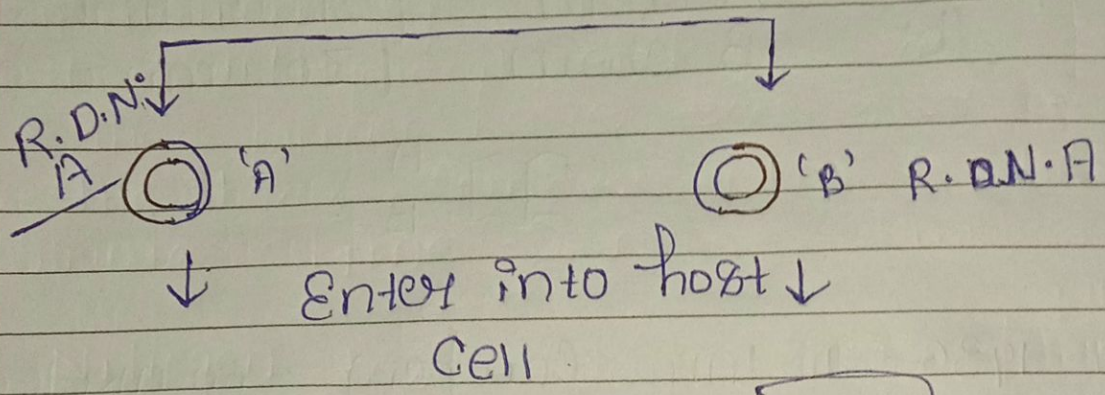 R.D.N.
A 'A' 'B' R.D.N.A
Enter into host
Cell